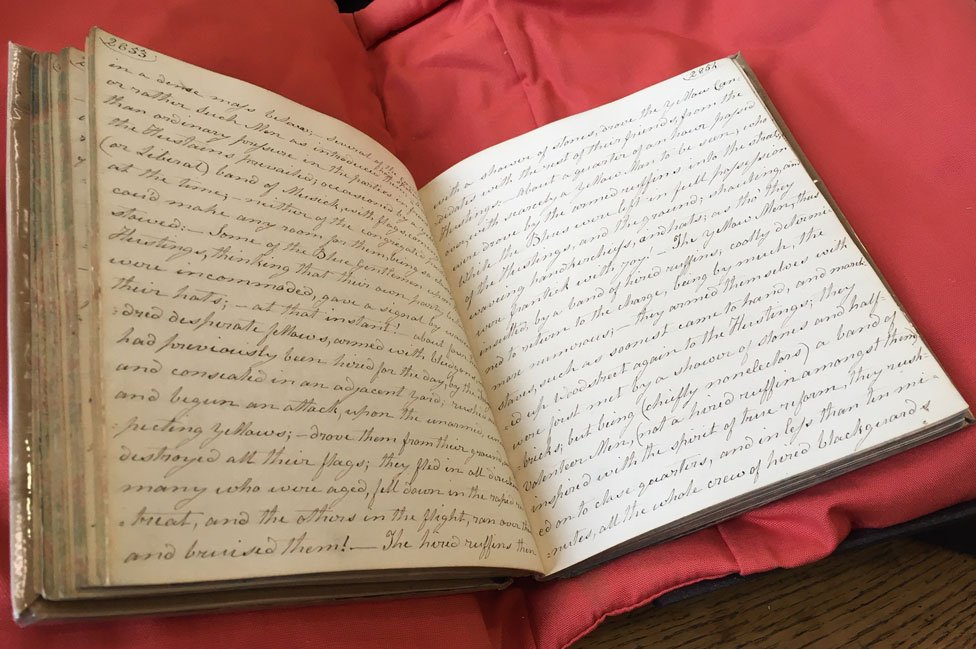 2653
in a dense mass below; several of the
or rather such Men as introduced this
than ordinary pressure in the parties in
the Hustains prevailed; occasioned by a
(or Liberal) band of Musick with flags, com
at the time; - neither of the congregated
coud make any room for them, being so
:stained: - Some of the Blue Gentlemen
Hustings, thinking that their own party
were incommoded, gave a signal by
their hats; - at that instant! about four
:dred desperate fellows, armed with bludgeons
had previously been hired for the day, by the
and consealed in an adjacent yard, rushed
and begun an attack upon the unarmed,
:pecting Yellows; - drove them from their ground
destroyed all their flags; they fled in all directions
many who were aged, fell down in the rapid re
:treat, and the others in the flight, ran over them
and bruised them! - The hired ruffins then
2654
with a shower of stones, drove the Yellow Can
:didates with the rest of their friends, from the
Hustings - about a quarter of an hour passed
over, with scarcely a Yellow Man to be seen; who
were drove by the armed ruffins into the streets,
While the Blues were left in full possession
of the Hustings, and the ground; shouting, and
waving handkerchiefs, and hats; as tho' they
were frantick with joy! - The Yellow Men, thus
insulted by a band of hired ruffins, coolly determi
:ned to return to the charge, being by much, the
more numerous; - they armed themselves with
staves, such as soonest came to hand, and march
:ed up Woodstreet again to the Hustings; they
were first met by a shower of stones and half-
bricks, but being (chiefly nonelectors) a band of
volunteer Men, (not a hired ruffin amongst them)
inspired with the spirit of true reform, they rush-
ed on to close quarters, and in less than ten mi
:nutes, all the whole crew of hired blackguards